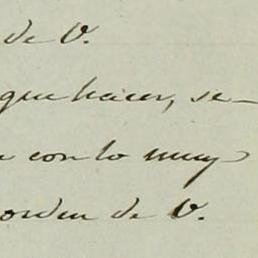 de V.
que hacer, se-
con lo muy
orden de V.